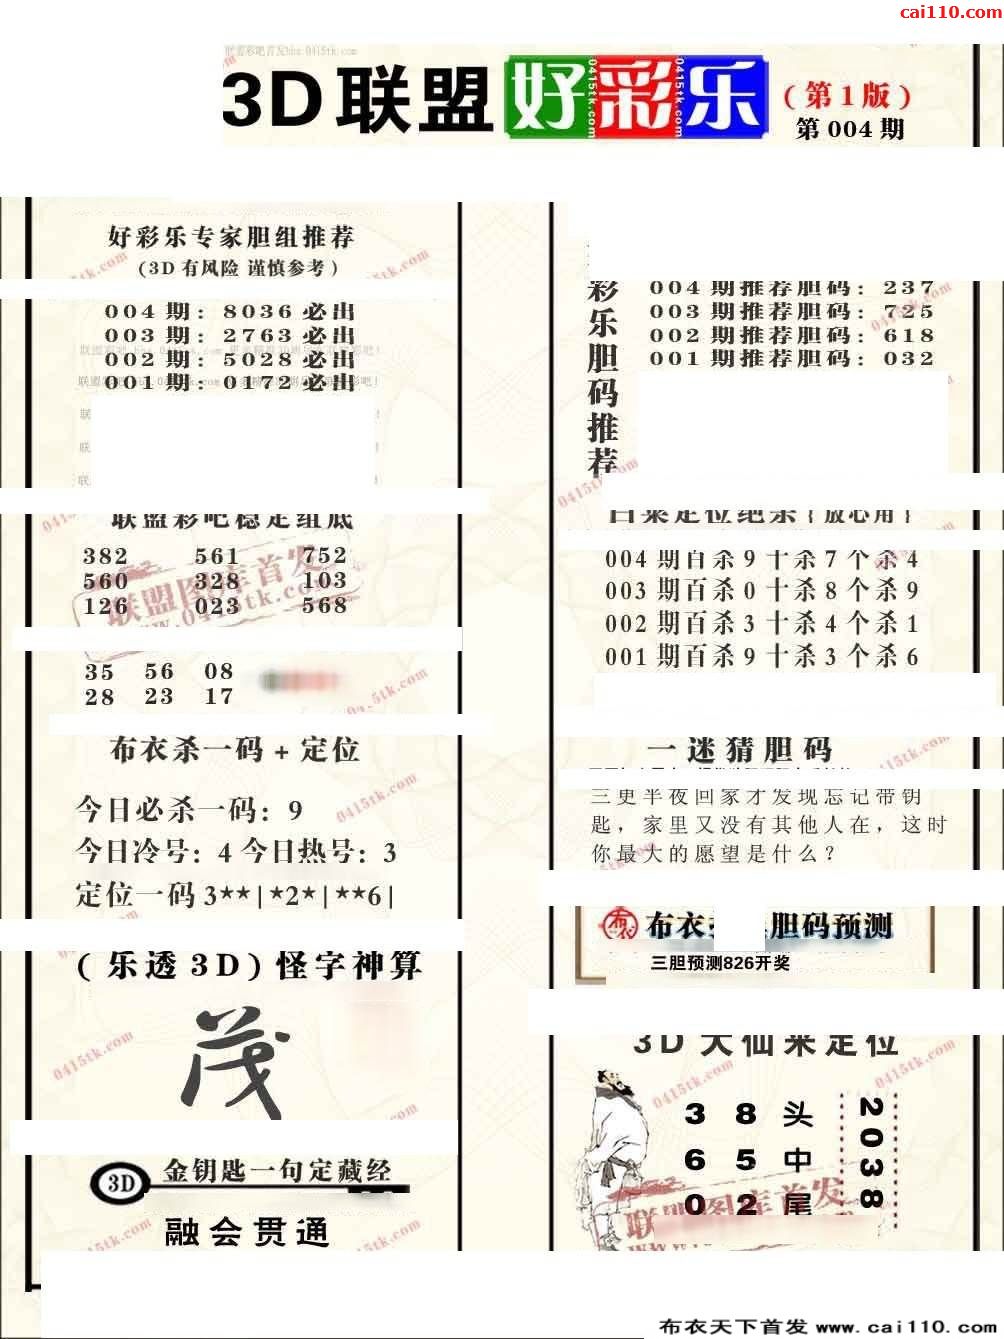 cai110.com
3D联盟好彩乐
(第1版)
第004期
好彩乐专家胆组推荐
(3D有风险 谨慎参考)
004期: 8036必出
003期: 2763必出
002期: 5028必出
001期: 0172必出
联盟彩吧稳定组底
382 561 752
560 328 103
126 023 568
35 56 08
28 23 17
布衣杀一码+定位
今日必杀一码: 9
今日冷号: 4 今日热号: 3
定位一码 3**|*2*|**6|
(乐透3D)怪字神算
茂
3D
金钥匙一句定藏经
融会贯通
彩乐胆码推荐
004期推荐胆码: 237
003期推荐胆码: 725
002期推荐胆码: 618
001期推荐胆码: 032
定位绝杀{放心用}
004期百杀9十杀7个杀4
003期百杀0十杀8个杀9
002期百杀3十杀4个杀1
001期百杀9十杀3个杀6
一迷猜胆码
三更半夜回家才发现忘记带钥
匙，家里又没有其他人在，这时
你最大的愿望是什么？
布衣
布衣 胆码预测
三胆预测826开奖
3D大仙来定位
3 8 头
6 5 中
0 2 尾
2038
联盟图库首发
0415tk.com
布衣天下首发 www.cai110.com